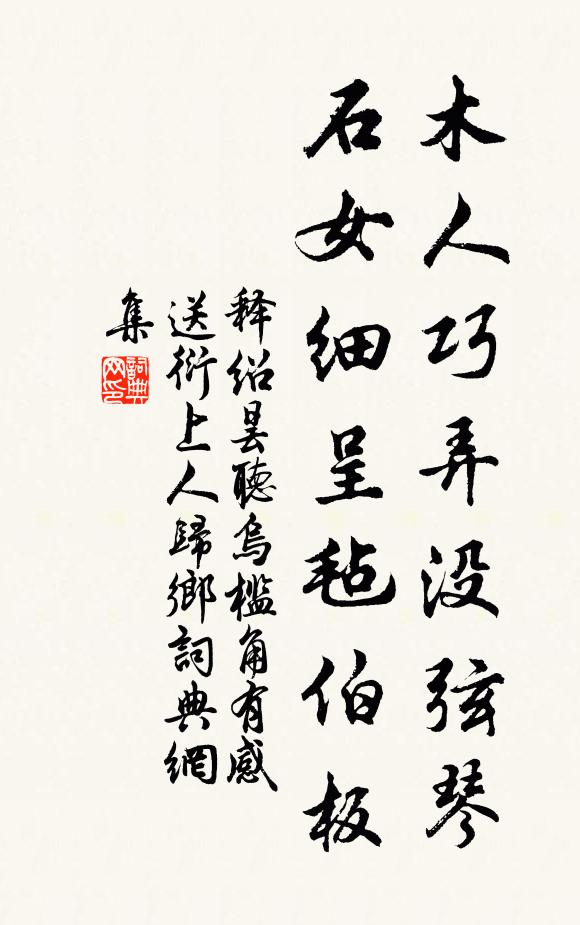 木人巧弄没弦琴
石女细呈毡伯板
释绍昙聽烏槛角有感
送衍上人歸鄉詞典網
集
詞典
网印